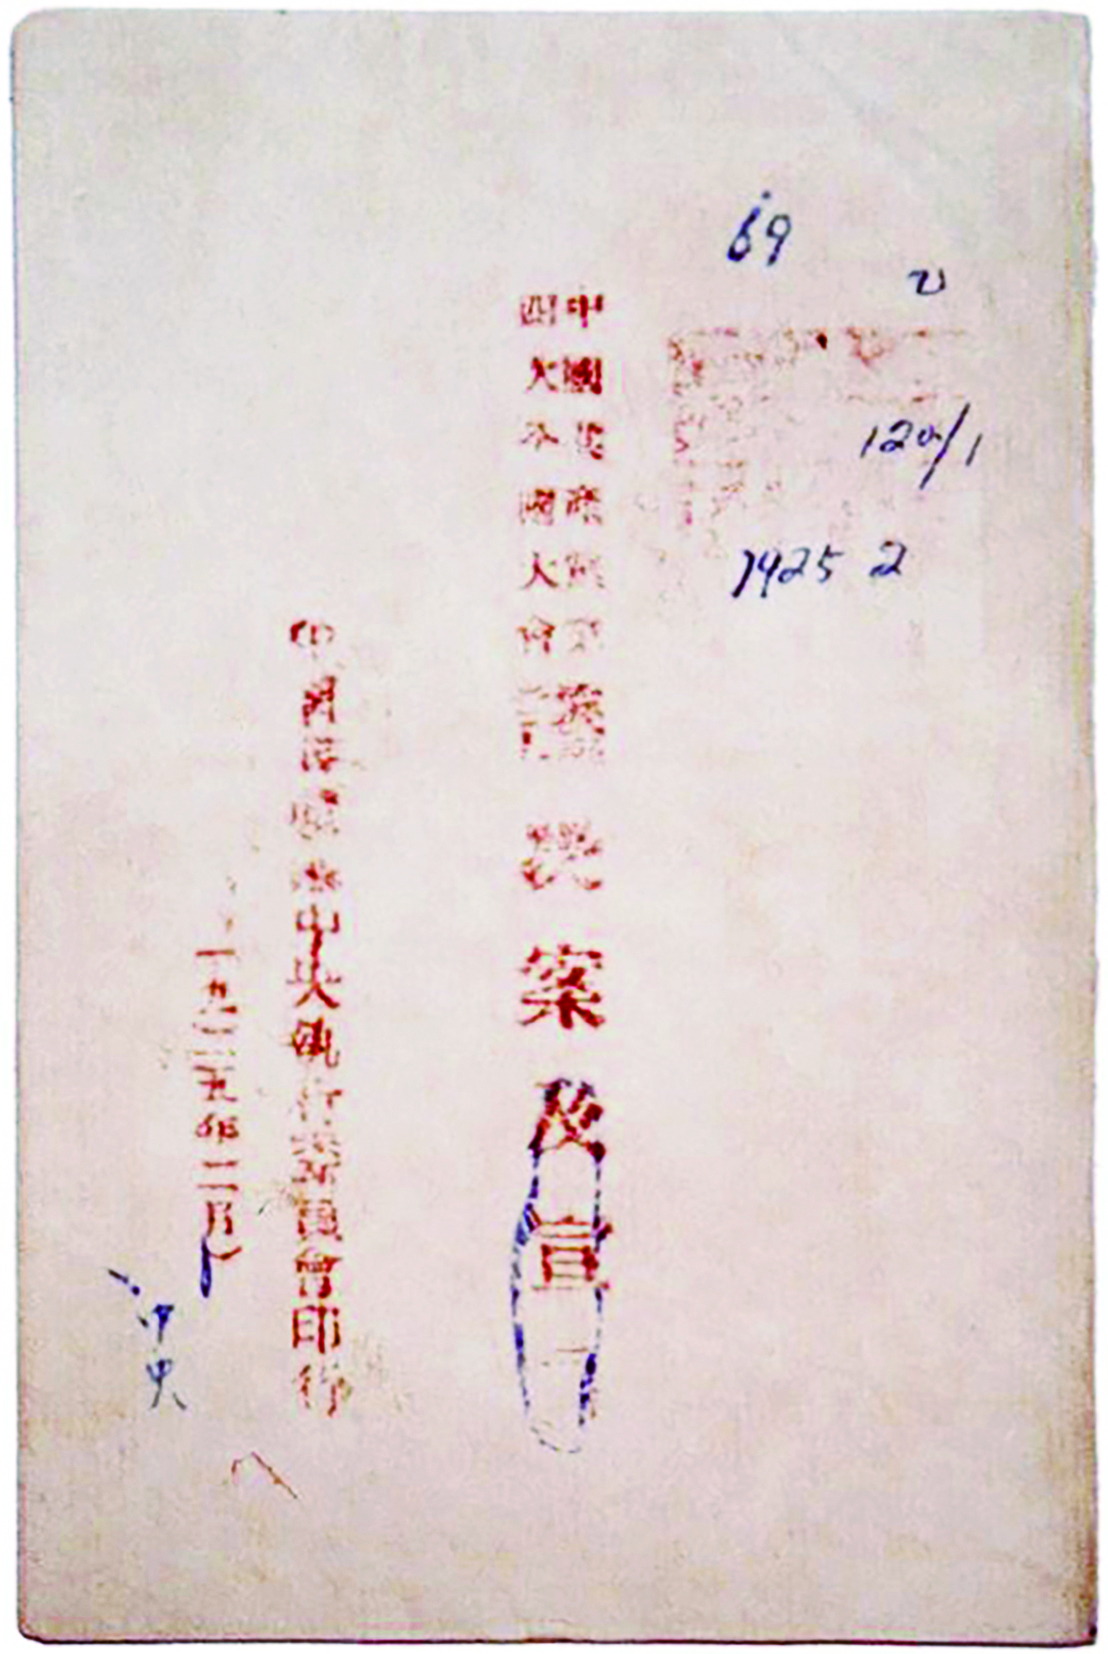 69
2
120/1
1925 2
中國共產黨第
四次全國大會
議決案及宣
中國共產黨中央執行委員會印行
一九二五年二月
中央